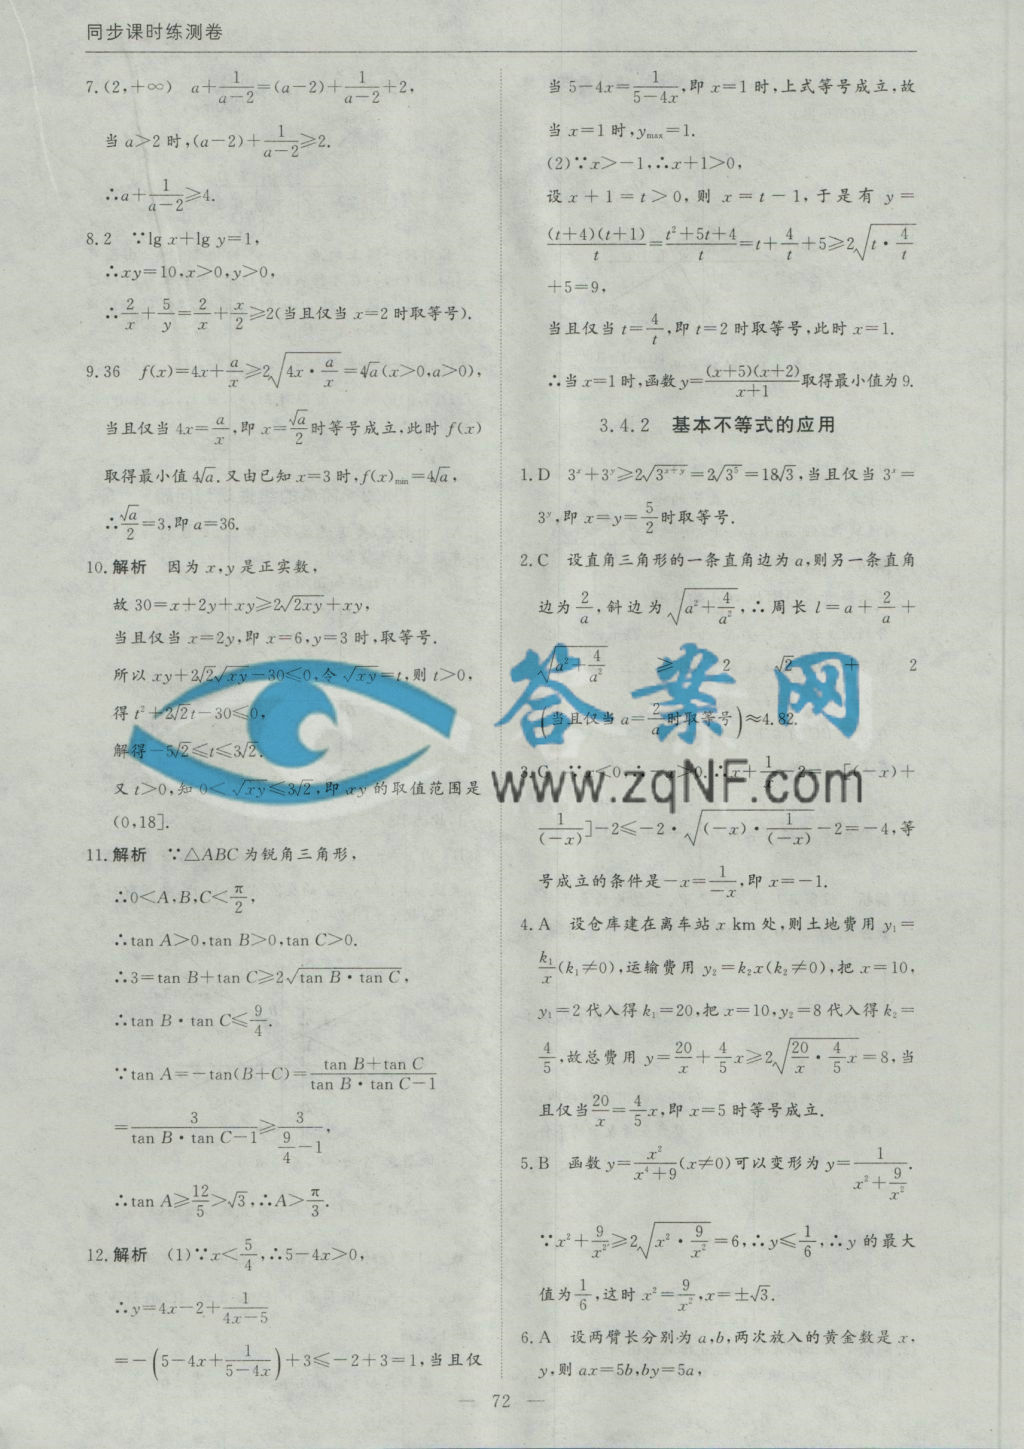 同步课时练测卷
7.(2,+∞) a+1/(a-2)=(a-2)+1/(a-2)+2,
当 a>2 时,(a-2)+1/(a-2)≥2.
∴a+1/(a-2)≥4.
8.2 ∵lg x+lg y=1,
∴xy=10,x>0,y>0,
∴2/x+5/y=2/x+x/2≥2(当且仅当 x=2 时取等号).
9.36 f(x)=4x+a/x≥2√(4x·a/x)=4√a(x>0,a>0),
当且仅当 4x=a/x,即 x=√a/2时等号成立,此时 f(x)
取得最小值 4√a.又由已知 x=3 时,f(x)min=4√a,
∴√a/2=3,即 a=36.
10.解析 因为 x,y 是正实数,
故 30=x+2y+xy≥2√(2xy)+xy,
当且仅当 x=2y,即 x=6,y=3 时,取等号.
所以 xy+2√2√(xy)-30≤0,令 √(xy)=t,则 t>0,
得 t²+2√2t-30≤0,
解得-5√2≤t≤3√2.
又 t>0,知 0<√(xy)≤3√2,即 xy 的取值范围是
(0,18].
11.解析 ∵△ABC 为锐角三角形,
∴0<A,B,C<π/2,
∴tan A>0,tan B>0,tan C>0.
∴3=tan B+tan C≥2√(tan B·tan C),
∴tan B·tan C≤9/4.
∵tan A=-tan(B+C)=(tan B+tan C)/(tan B·tan C-1)
=3/(tan B·tan C-1)≥3/(9/4-1),
∴tan A≥12/5>√3,∴A>π/3.
12.解析 (1)∵x<5/4,∴5-4x>0,
∴y=4x-2+1/(4x-5)
=-(5-4x+1/(5-4x))+3≤-2+3=1,当且仅
当 5-4x=1/(5-4x),即 x=1 时,上式等号成立,故
当 x=1 时,ymax=1.
(2)∵x>-1,∴x+1>0,
设 x+1=t>0,则 x=t-1,于是有 y=
(t+4)(t+1)/t=(t²+5t+4)/t=t+4/t+5≥2√(t·4/t)
+5=9,
当且仅当 t=4/t,即 t=2 时取等号,此时 x=1.
∴当 x=1 时,函数 y=(x+5)(x+2)/(x+1)取得最小值为 9.
3.4.2 基本不等式的应用
1.D 3ˣ+3ʸ≥2√(3ˣ⁺ʸ)=2√(3⁵)=18√3,当且仅当 3ˣ=
3ʸ,即 x=y=5/2时取等号.
2.C 设直角三角形的一条直角边为 a,则另一条直角
边为2/a,斜边为√(a²+4/a²),∴周长 l=a+2/a+
√(a²+4/a²) ≥ 2 √2 + 2
(当且仅当 a=2/a时取等号)≈4.82.
3.C ∵x<0,∴-x>0,∴x+1/x-2=-[(-x)+
1/(-x)]-2≤-2·√((-x)·1/(-x))-2=-4,等
号成立的条件是-x=1/-x,即 x=-1.
4.A 设仓库建在离车站 x km 处,则土地费用 y₁=
k₁/x(k₁≠0),运输费用 y₂=k₂x(k₂≠0),把 x=10,
y₁=2 代入得 k₁=20,把 x=10,y₂=8 代入得 k₂=
4/5,故总费用 y=20/x+4/5x≥2√(20/x·4/5x)=8,当
且仅当20/x=4/5x,即 x=5 时等号成立.
5.B 函数 y=x²/(x⁴+9)(x≠0)可以变形为 y=1/(x²+9/x²).
∵x²+9/x²≥2√(x²·9/x²)=6,∴y≤1/6,∴y 的最大
值为1/6,这时 x²=9/x²,x=±√3.
6.A 设两臂长分别为 a,b,两次放入的黄金数是 x,
y,则 ax=5b,by=5a,
— 72 —
答案网
www.zqNF.com